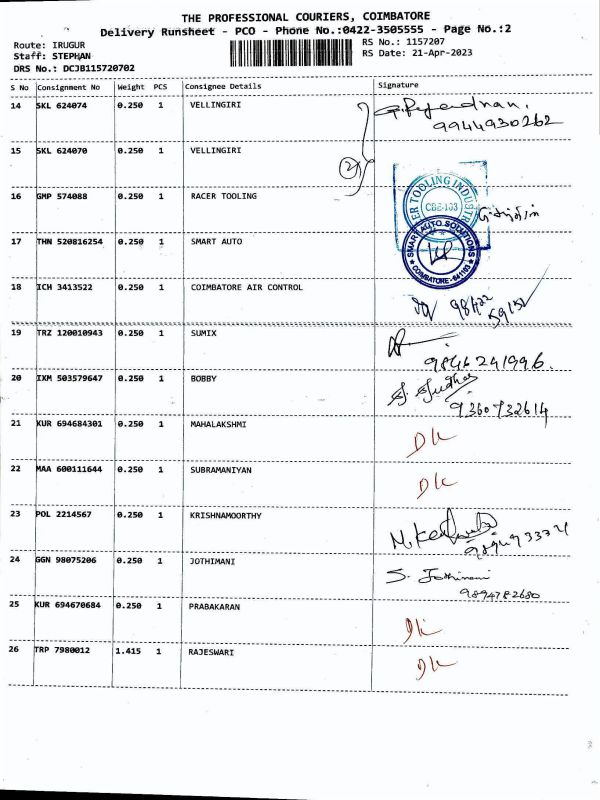 THE PROFESSIONAL COURIERS, COIMBATORE
Delivery Runsheet - PCO - Phone No.:0422-3505555 - Page No.:2
Route: IRUGUR
RS No.: 1157207
Staff: STEPHAN
RS Date: 21-Apr-2023
DRS No.: DCJB115720702
S No Consignment No Weight PCS Consignee Details Signature
14 SKL 624074 0.250 1 VELLINGIRI
9944930262
15 SKL 624070 0.250 1 VELLINGIRI
2
16 GMP 574088 0.250 1 RACER TOOLING
ER TOOLING INDUSTR
CBE-103
17 THN 520816254 0.250 1 SMART AUTO
SMART AUTO SOLUTIONS
COIMBATORE - 641103
18 ICH 3413522 0.250 1 COIMBATORE AIR CONTROL
19 TRZ 120010943 0.250 1 SUMIX
9846241996.
20 IXM 503579647 0.250 1 BOBBY
9360732614
21 KUR 694684301 0.250 1 MAHALAKSHMI
DL
22 MAA 600111644 0.250 1 SUBRAMANIYAN
DL
23 POL 2214567 0.250 1 KRISHNAMOORTHY
24 GGN 98075206 0.250 1 JOTHIMANI
S. Jothimani
9894782680
25 KUR 694670684 0.250 1 PRABAKARAN
DL
26 TRP 7980012 1.415 1 RAJESWARI
DL